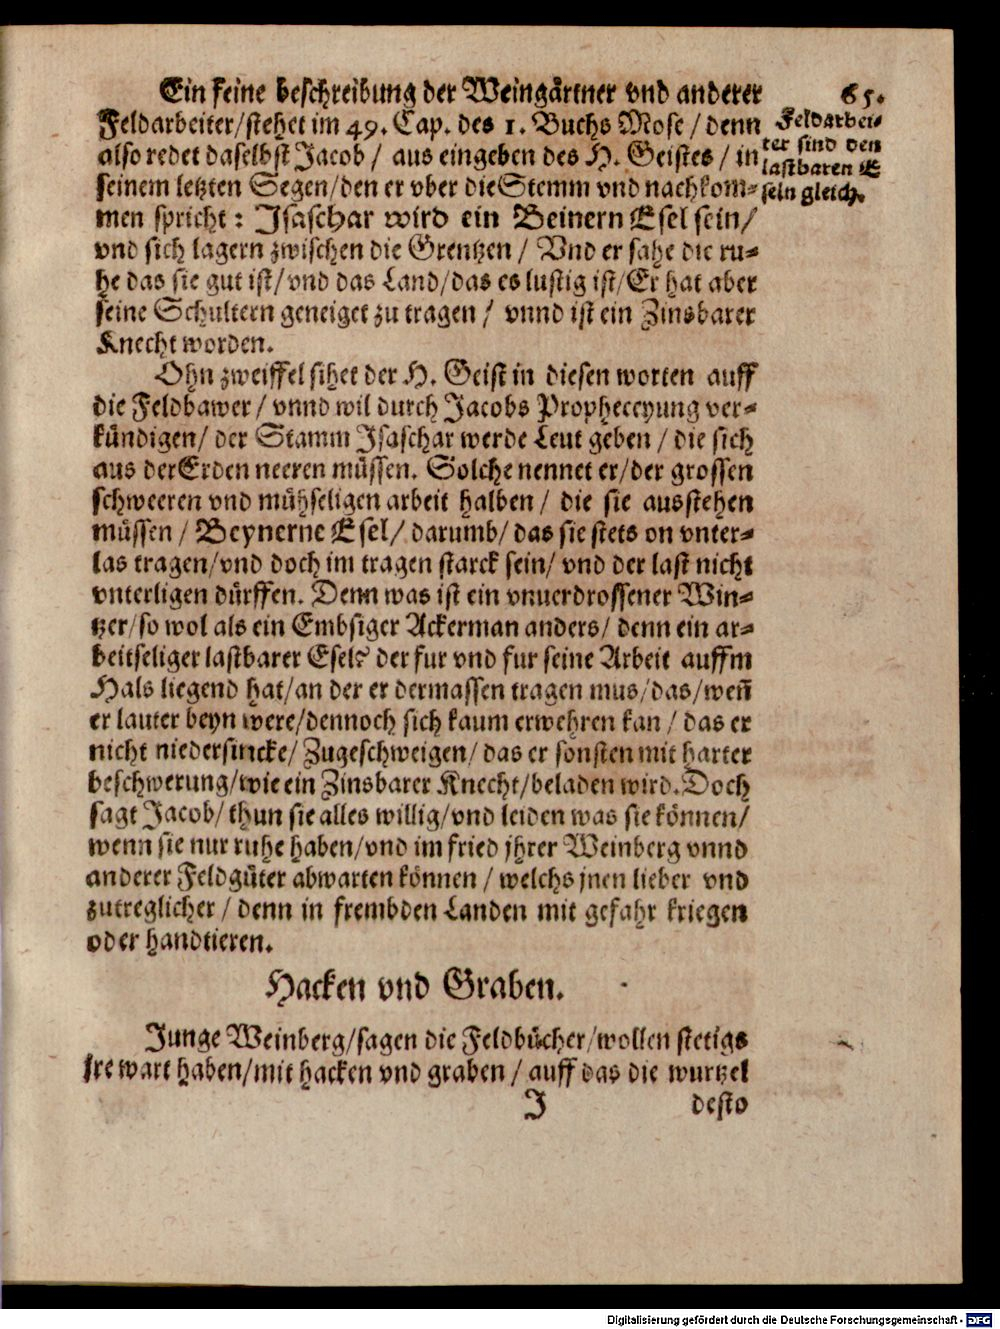 Ein feine beschreibung der Weingärtner vnd anderer
65.
Feldarbeiter/stehet im 49. Cap. des 1. Buchs Mose / denn
also redet daselbst Jacob / aus eingeben des H. Geistes / in
seinem letzten Segen/den er vber die Stemm vnd nachkom-
men spricht: Jsaschar wird ein Beinern Esel sein/
vnd sich lagern zwischen die Grentzen / Vnd er sahe die ru-
he das sie gut ist/vnd das Land/das es lustig ist/Er hat aber
seine Schultern geneiget zu tragen / vnnd ist ein Zinsbarer
Knecht worden.
Feldarbei-
ter sind den
lastbaren E
seln gleich.
Ohn zweiffel sihet der H. Geist in diesen worten auff
die Feldbawer / vnnd wil durch Jacobs Propheceyung ver-
kündigen/ der Stamm Jsaschar werde Leut geben / die sich
aus der Erden neeren müssen. Solche nennet er/der grossen
schweeren vnd mühseligen arbeit halben / die sie ausstehen
müssen / Beynerne Esel/ darumb/ das sie stets on vnter-
las tragen/vnd doch im tragen starck sein/ vnd der last nicht
vnterligen dürffen. Denn was ist ein vnuerdrossener Win-
tzer/so wol als ein Embsiger Ackerman anders/ denn ein ar-
beitseliger lastbarer Esel? der fur vnd fur seine Arbeit auffm
Hals liegend hat/an der er dermassen tragen mus/das/weñ
er lauter beyn were/dennoch sich kaum erwehren kan / das er
nicht niedersincke/ Zugeschweigen/ das er sonsten mit harter
beschwerung/wie ein Zinsbarer Knecht/beladen wird. Doch
sagt Jacob/ thun sie alles willig/vnd leiden was sie können/
wenn sie nur ruhe haben/vnd im fried jhrer Weinberg vnnd
anderer Feldgüter abwarten können / welchs jnen lieber vnd
zutreglicher / denn in frembden Landen mit gefahr kriegen
oder handtieren.
Hacken vnd Graben.
Junge Weinberg/sagen die Feldbücher/wollen stetigs
jre wart haben/mit hacken vnd graben / auff das die wurtzel
J
desto
Digitalisierung gefördert durch die Deutsche Forschungsgemeinschaft - DFG